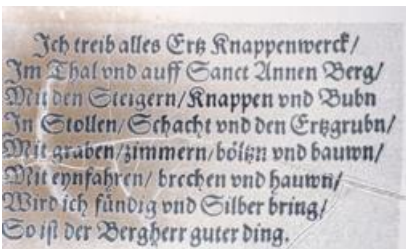 Jch treib alles Ertz Knappenwerck/
Jm Thal vnd auff Sanct Annen Berg/
Mit den Steigern/Knappen vnd Bubn
Jn Stollen/Schacht vnd den Ertzgrubn/
Mit graben/zimmern/böltzn vnd bauwn/
Mit eynfahren/ brechen vnd hauwn/
Wird ich fündig vnd Silber bring/
So ist der Bergherr guter ding.